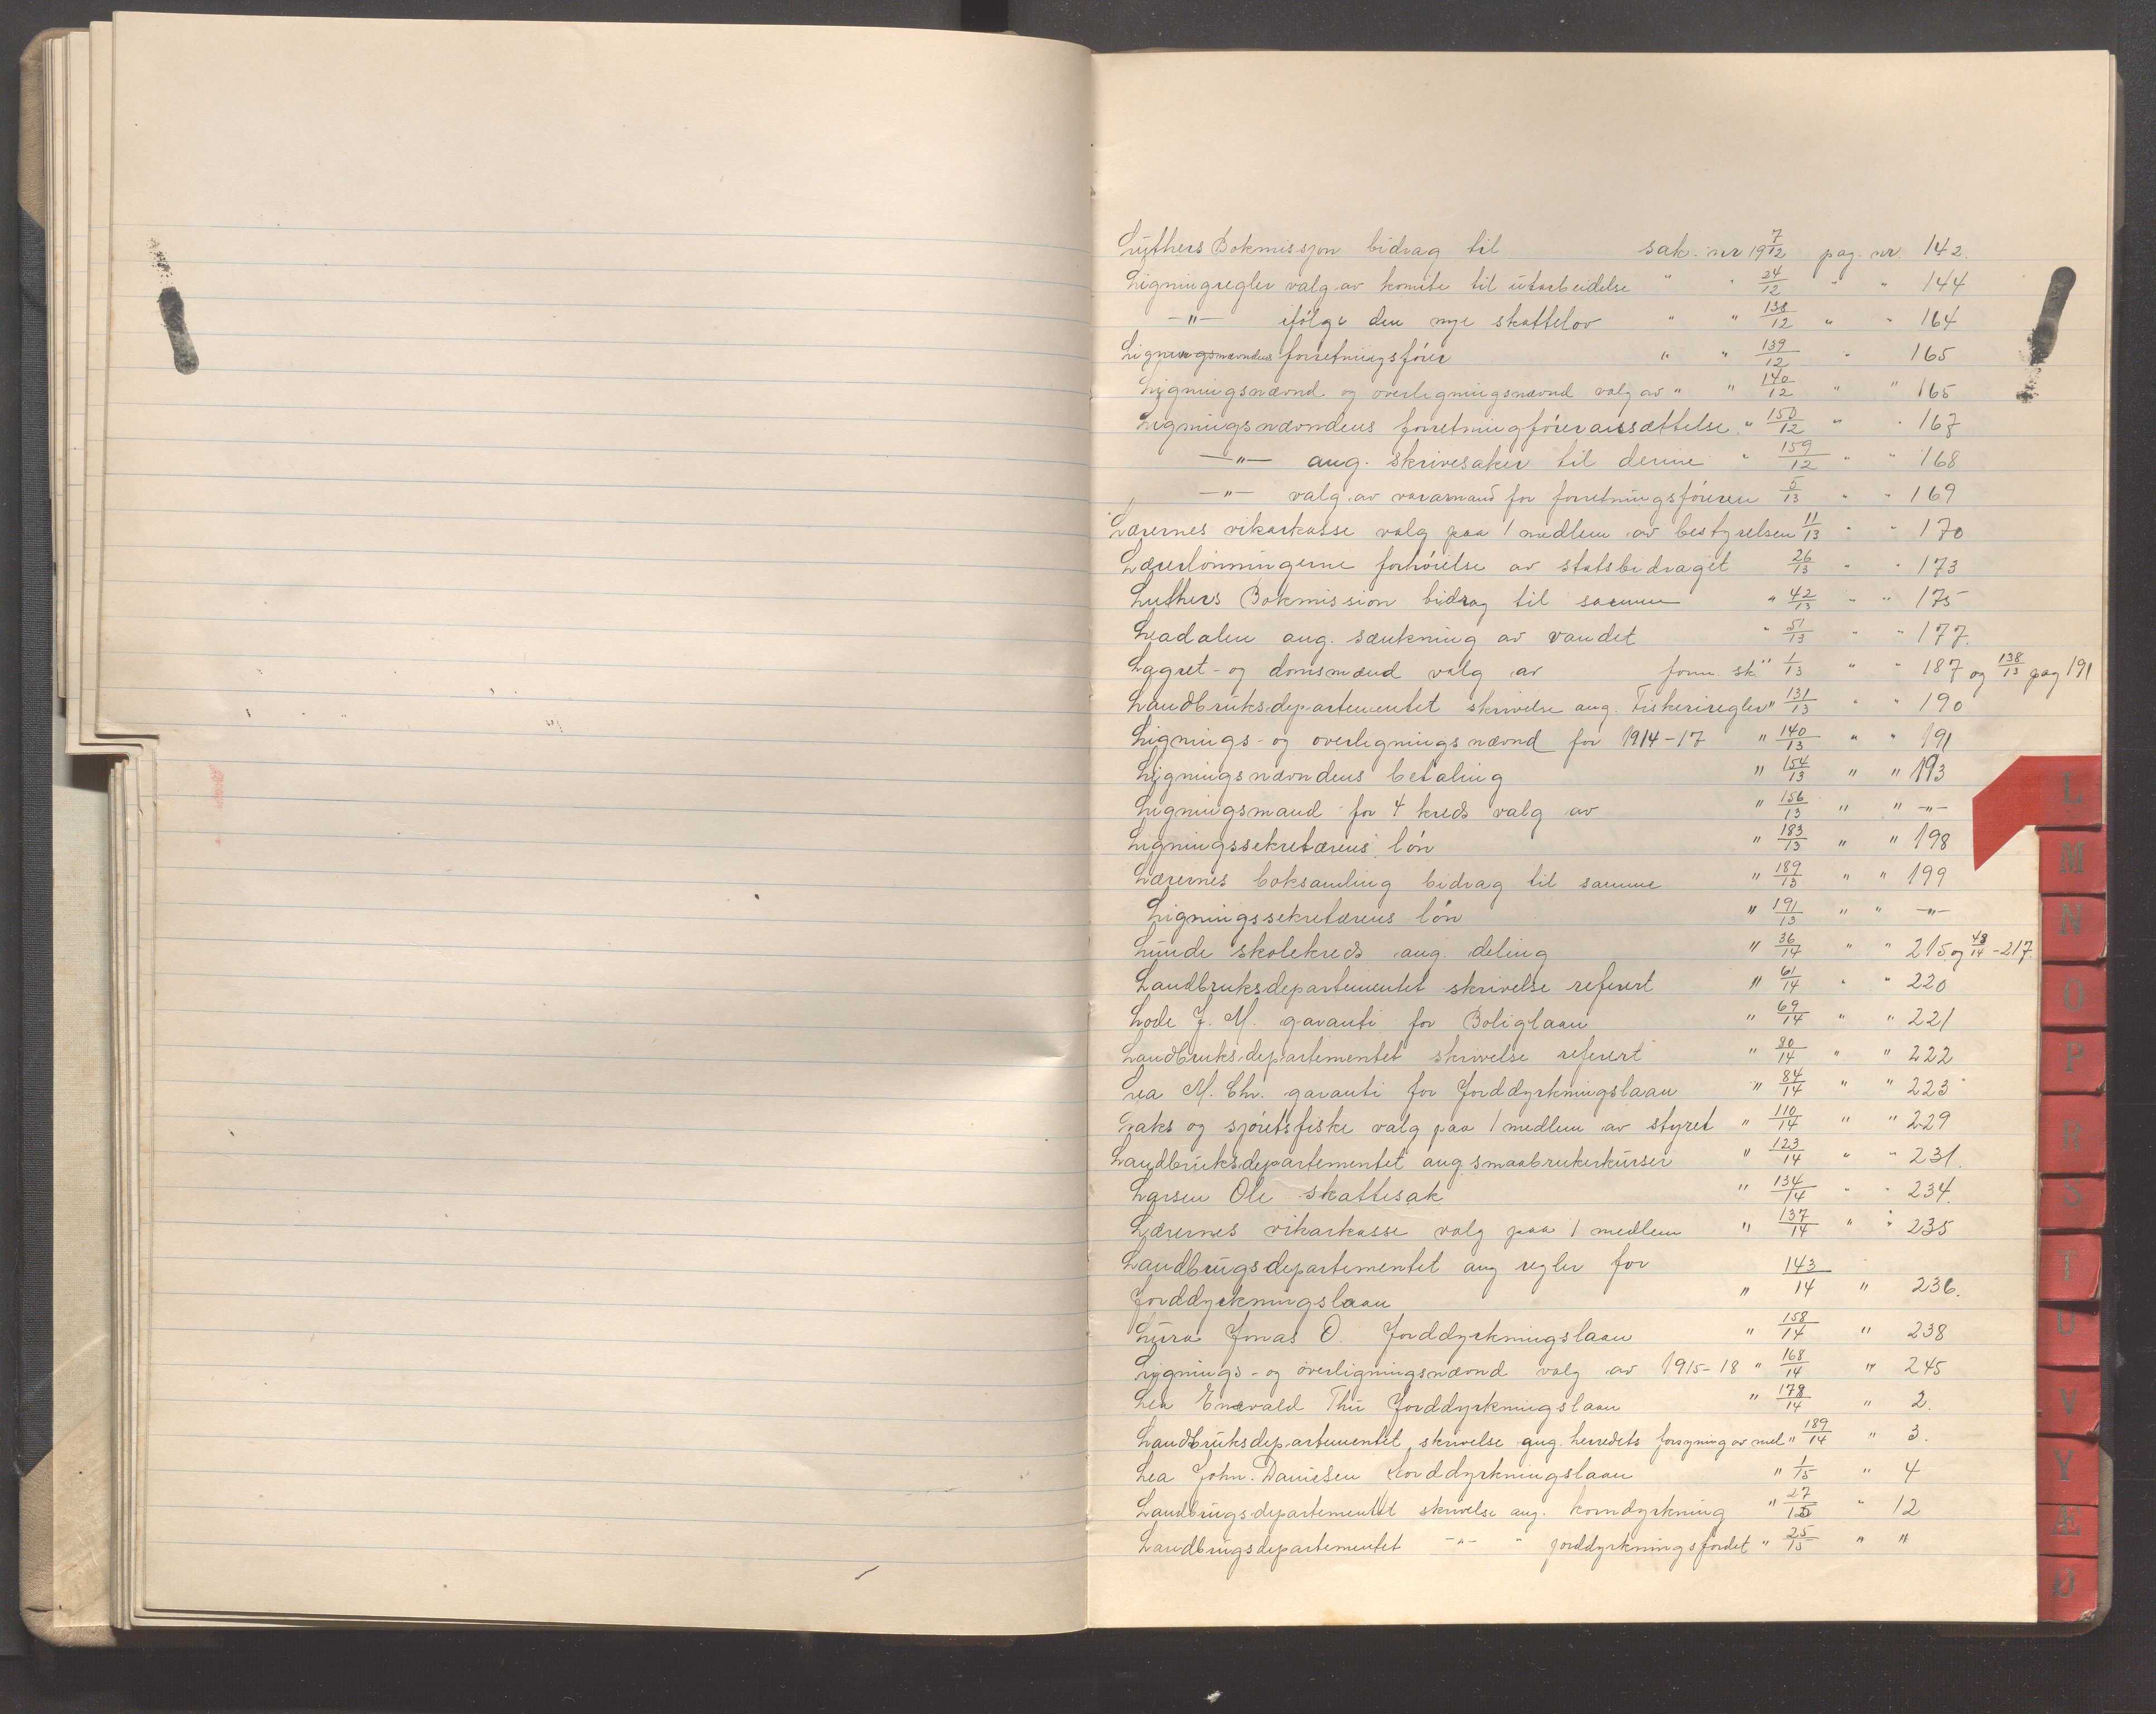 Luthers Bokmissjon bidrag til sak. nr 19 7/12 pag. nr. 142.
Ligningregler valg av komite til utarbeidelse " " 24/12 " " 144
—"— ifølge den nye skattelov " " 138/12 " " 164
Ligningsnævndens forretningsfører " " 139/12 " 165
Ligningsnævnd og overligningsnævnd valg av " " 140/12 " " 165
Ligningsnævndens forretningføreransættelse " 150/12 " " 167
—"— ang. skrivesaker til denne " 159/12 " " 168
—"— valg av varamand for forretningsføreren 5/13 " " 169
Lærernes vikarkasse valg paa 1 medlem av bestyrelsen 11/13 " " 170
Lærerlønningerne forhøielse av statsbidraget 26/13 " " 173
Luthers Bokmission bidrag til samme " 42/13 " " 175
Leadalen ang. sænkning av vandet " 51/13 " " 177.
Lagret- og domsmænd valg av form. sk " 1/13 " " 187 og 138/13 pag 191
Landbruksdepartementet skrivelse ang. Fiskeriregler " 131/13 " " 190
Lignings- og overlignings nævnd for 1914-17 " 140/13 " " 191
Ligningsnævndens betaling " 154/13 " " 193
Ligningsmand for 4 kreds valg av " 156/13 " " —"—
Ligningssekretærens løn " 183/13 " " 198
Lærernes boksamling bidrag til samme " 189/13 " " 199
Ligningssekretærens løn " 191/13 " " —"—
Lunde skolekreds ang. deling " 36/14 " " 215 og 48/14 - 217.
Landbruksdepartementet skrivelse referert " 61/14 " " 220
Lode J. M. garanti for Boliglaan " 69/14 " " 221
Landbruksdepartementet skrivelse referert " 80/14 " " 222
Lea M. Chr. garanti for Jorddyrkningslaan " 84/14 " " 223
Laks og sjøretsfiske valg paa 1 medlem av styret " 110/14 " " 229
Landbruksdepartementet ang. smaabrukerkurser " 123/14 " " 231.
Larsen Ole skattesak " 134/14 " " 234.
Lærernes vikarkasse valg paa 1 medlem " 137/14 " " 235
Landbrugsdepartementet ang regler for
Jorddyrkningslaan " 143/14 " 236.
Lura Jonas O. Jorddyrkningslaan " 158/14 " 238
Lignings- og overligningsnævnd valg av 1915-18 " 168/14 " 245
Lea Enevald Thu Jorddyrkningslaan " 178/14 " 2.
Landbruksdepartementet skrivelse ang. herredets forsyning av mel " 189/14 " 3.
Lea John. Danielsen Jorddyrkningslaan " 1/15 " 4
Landbrugsdepartementet skrivelse ang. korndyrkning " 27/15 " 12
Landbrugsdepartementet —"— " jorddyrkningsfondet " 25/15 " "
L
M
N
O
P
R
S
T
U
V
Y
Æ
Ø